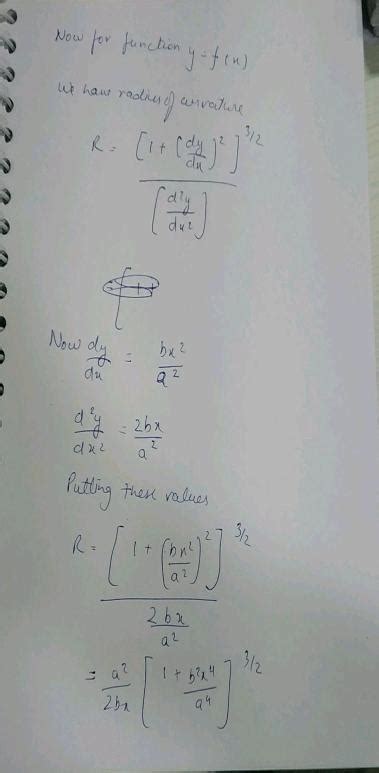 Now for function y = f(x)
We have radius of curvature
R = [1 + (dy/dx)^2]^3/2 / [d²y/dx²]
Now dy/dx = bx²/a²
d²y/dx² = 2bx/a²
Putting these values
R = [1 + (bx²/a²)²]^3/2 / 2bx/a²
= a²/2bx [1 + b²x⁴/a⁴]^3/2